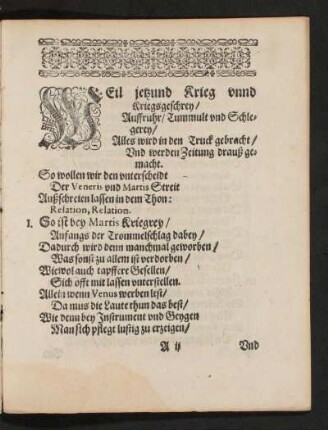 WEil jetzund Krieg vnnd
Kriegsgeschrey/
Auffruhr/ Tummult vnd Schle-
gerey/
Alles wird in den Truck gebracht/
Vnd werden Zeitung drauß ge-
macht.
So wollen wir den vnterscheidt
Der Veneris vnd Martis Streit
Außschreien lassen in dem Thon:
Relation, Relation.
1. So ist bey Martis Kriegrey/
Anfangs der Trommelschlag dabey/
Dadurch wird denn manchmal geworben/
Was sonst zu allem ist verdorben/
Wiewol auch tapffere Gesellen/
Sich offt mit lassen vnterstellen.
Allein wenn Venus werben lest/
Da mus die Laute thun das best/
Wie denn bey Instrument vnd Geygen
Man sich pflegt lustig zu erzeigen/
A ij Vnd